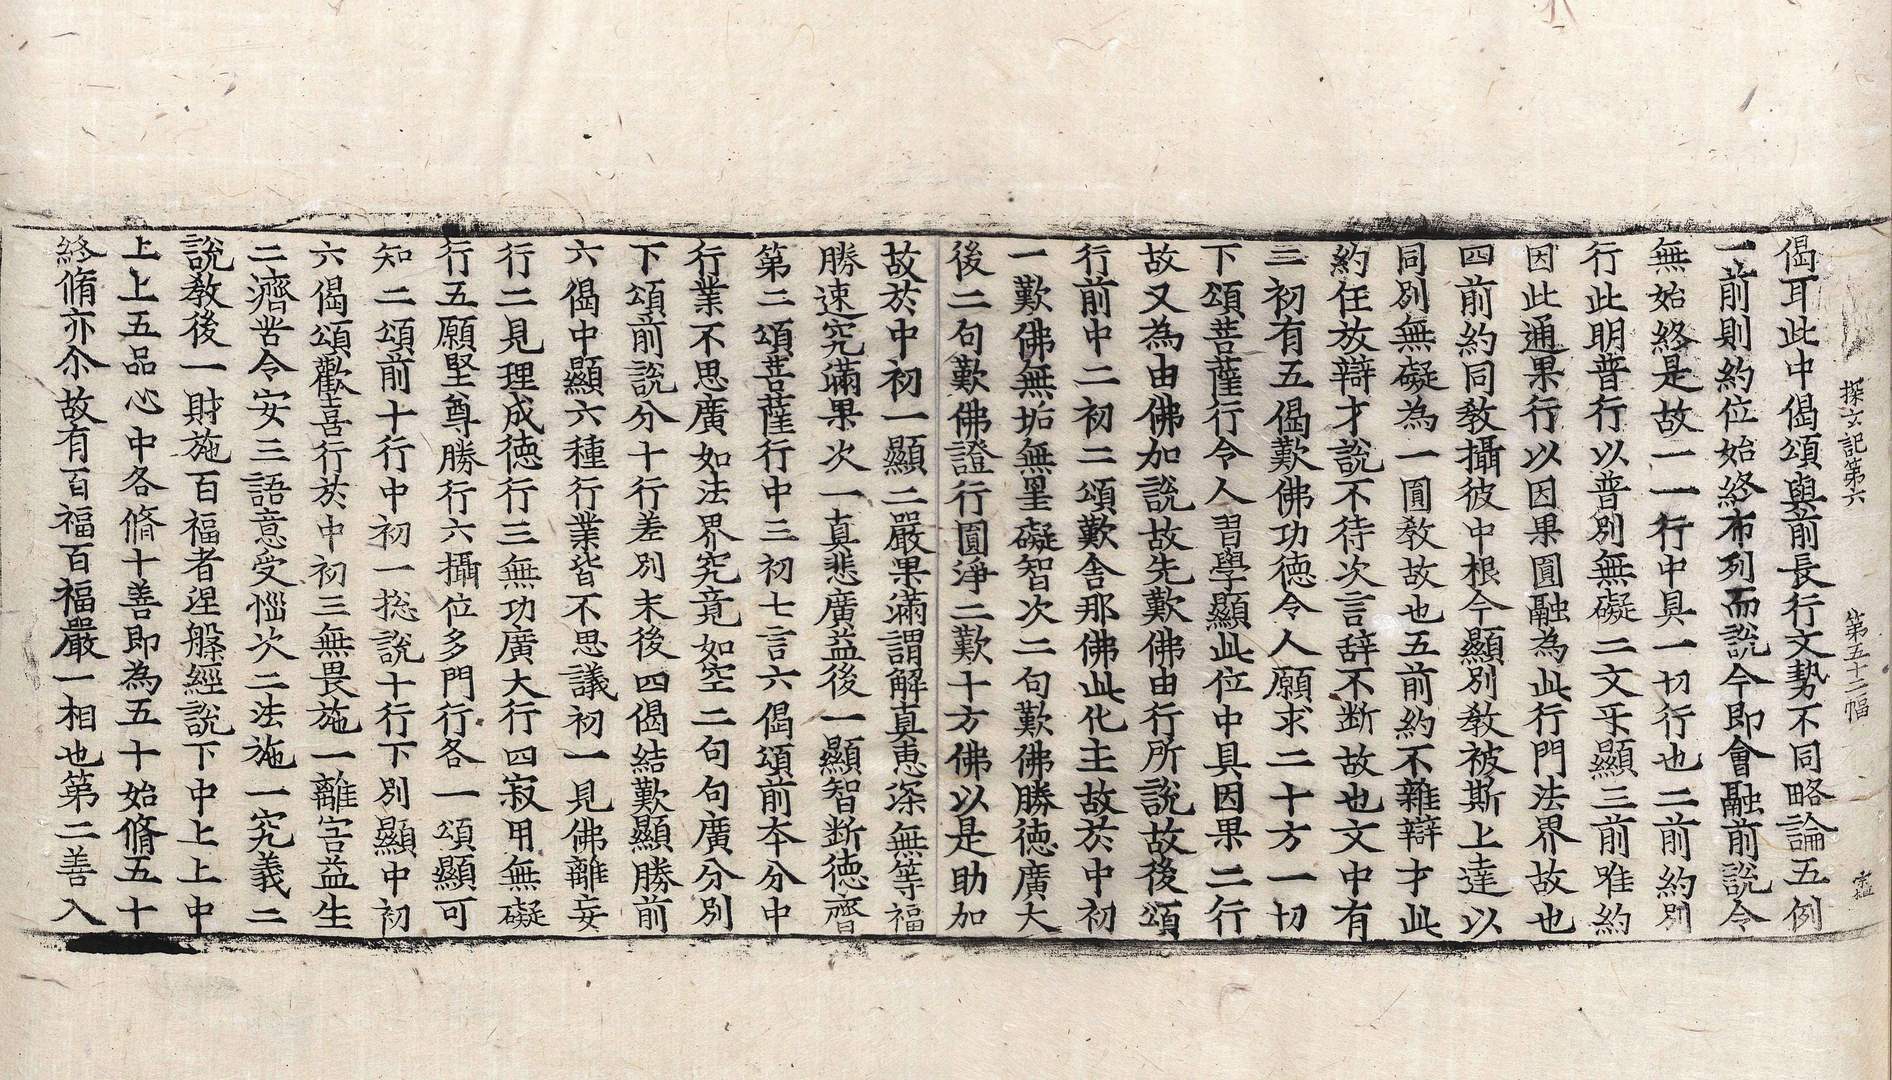 探玄記第六 第五十二幅
偈耳此中偈頌與前長行文勢不同略論五例
一前則約位始終布列而說今即會融前說令
無始終是故一一行中具一切行也二前約別
行此明普行以普別無礙二文㸦顯三前唯約
因此通果行以因果圓融為此行門法界故也
四前約同教攝彼中根今顯別教被斯上達以
同別無礙為一圓教故也五前約不雜辯才此
約任放辯才說不待次言辞不断故也文中有
三初有五偈歎佛功德令人願求二十方一切
下頌菩薩行令人習學顯此位中具因果二行
故又為由佛加說故先歎佛由行所說故後頌
行前中二初二頌歎舍那佛此化主故於中初
一歎佛無垢無罣礙智次二句歎佛勝德廣大
後二句歎佛證行圓淨二歎十方佛以是助加
故於中初一顯二嚴果滿謂解真惠深無等福
勝速究滿果次一真悲廣益後一顯智断德齊
第二頌菩薩行中三初七言六偈頌前本分中
行業不思廣如法界究竟如空二句句廣分別
下頌前說分十行差別末後四偈結歎顯勝前
六偈中顯六種行業皆不思議初一見佛離妄
行二見理成德行三無功廣大行四寂用無礙
行五願堅尊勝行六攝位多門行各一頌顯可
知二頌前十行中初一揔說十行下別顯中初
六偈頌歡喜行於中初三無畏施一離害益生
二濟苦令安三語意受惱次二法施一究義二
說教後一財施百福者涅槃經說下中上上中
上上五品心中各脩十善即為五十始脩五十
終脩亦尒故有百福百福嚴一相也第二善入